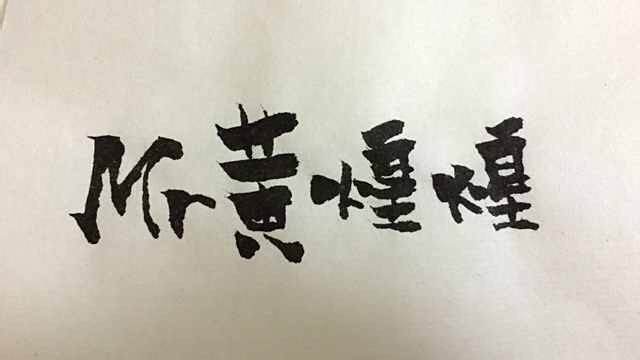 Mr黄煌煌